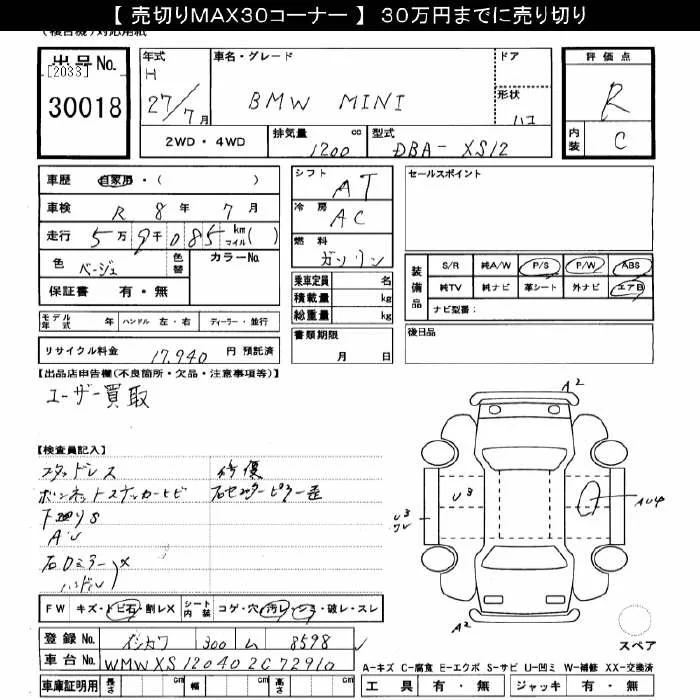 【 売切りMAX30コーナー 】 30万円までに売り切り
出品No. [2033] 30018
年式 H 27/7月
車名・グレード BMW MINI
ドア
形状 ハコ
評価点 R
内装 C
2WD・4WD 排気量 1200 cc 型式 DBA- XS12
車歴 自家用・( )
車検 R 8年 7月
走行 5万9千085 km マイル( )
色 ベージュ 色替 カラーNo.
保証書 有・無
シフト AT
冷房 AC
燃料 ガソリン
乗車定員 名
積載量 kg
総重量 kg
セールスポイント
装備品 S/R 純A/W P/S P/W ABS
純TV 純ナビ 革シート 外ナビ エアB
ナビ型番:
モデル年式 年 ハンドル 左・右 ディーラー・並行
書類期限 月 日
後日品
リサイクル料金 17,940 円 預託済
【出品店申告欄(不良箇所・欠品・注意事項等)】
ユーザー買取
【検査員記入】
スタッドレス 修復
ボンネットステッカーヒビ 右センターピラー歪
AU
右ロミラーX
ハンドル
A2
U3
U3
AU4
A2
FW キズ・トビ石・割レX シート内装 コゲ・穴・汚レ・シミ・破レ・スレ
登録No. イシカワ 300 ム 8598
車台No. WMWXS120402C72910
スペア
A-キズ C-腐食 E-エクボ S-サビ U-凹ミ W-補修 XX-交換済
車庫証明用 長さ 幅 高さ 工具 有・無 ジャッキ 有・無